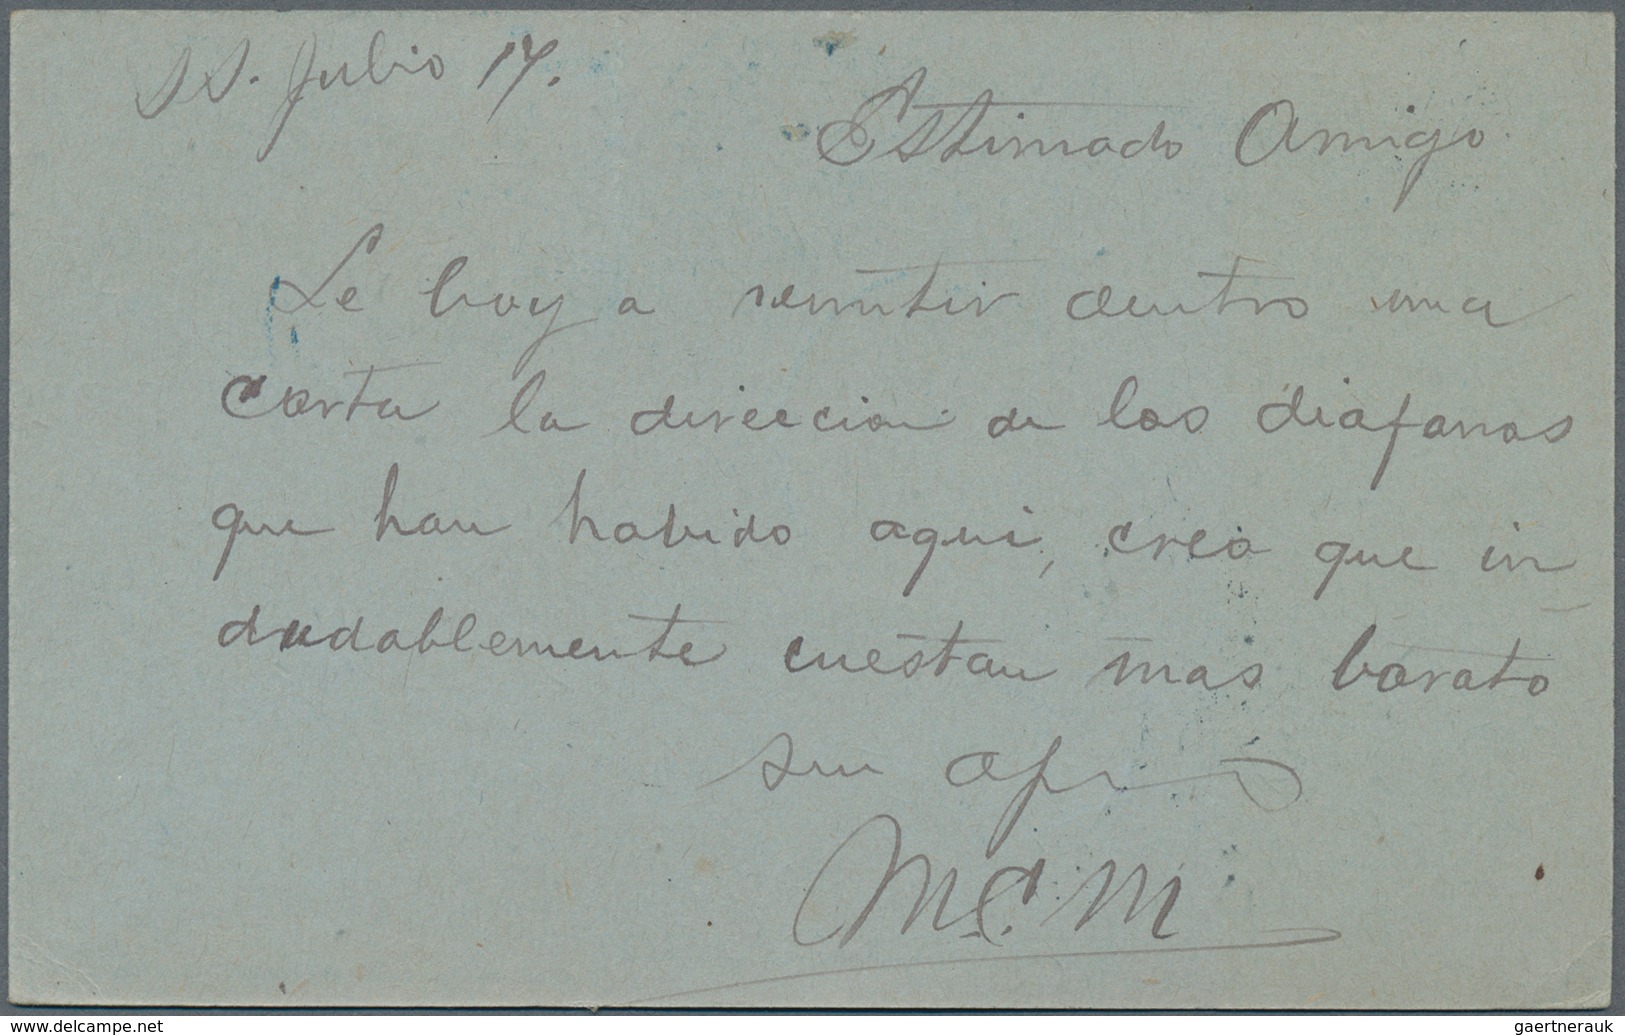 SS. Julio 17.
Estimado Amigo.
Le boy a remitir dentro una
carta la direccion de las diafanas
que han habido aqui, creo que in
dudablemente cuestan mas barato
su
M.C.M
www.delcampe.net
gaertnerauk